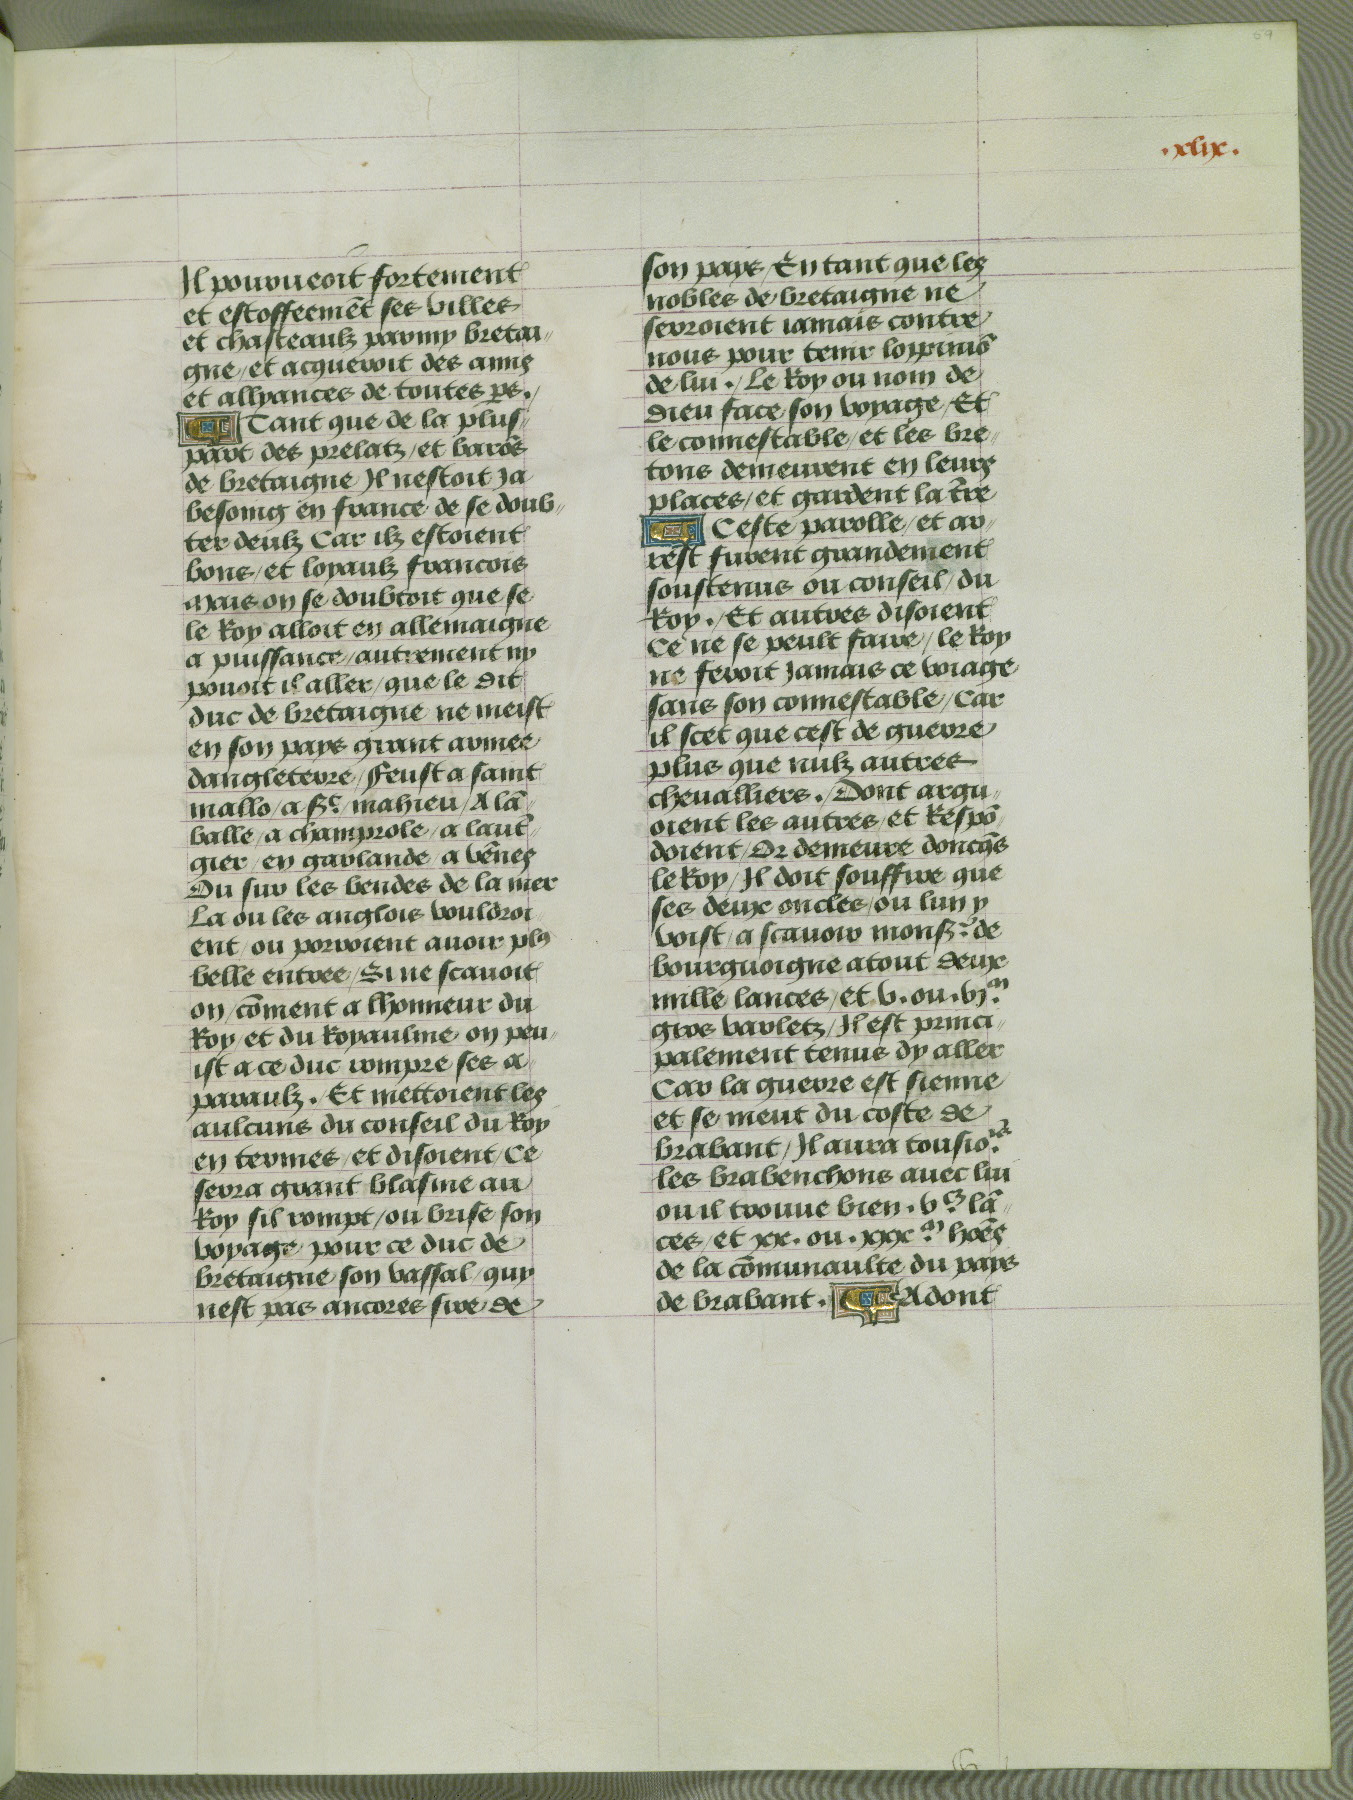 69
.xlix.
Il pourueoit fortement
et estoffeemēt ses villes
et chasteaulz parmy bretai„
gne / et acqueroit des amis
et allyances de toutes ꝑs./
E Tant que de la plus„
part des prelatz / et barōs
de bretaigne Il nestoit Ja
besoing en france de se doub„
ter deulz Car ilz estoient
bons / et loyaulz francois
Mais on se doubtoit que se
le Roy alloit en allemaigne
a puissance / autrement ny
pouoit il aller / que le dit
duc de bretaigne ne meist
en son pays grant armee
dangleterre / feust a saint
mallo / a sᵗ / mahieu / A lā„
balle / a champrole / a laut̄„
gier / en garlande / a vēnes
Ou sur les bendes de la mer
La ou les anglois vouldroi
ent / ou porroient auoir plꝰ
belle entree / Si ne scauoit
on / cōment a lhonneur du
Roy / et du Royaulme on peu„
ist a ce duc rompre ses a„
paraulz . / Et mettoient les
aulcuns du conseil du Roy
en termes / et disoient / Ce
serra grant blasme au
Roy sil rompt / ou brise son
voyage pour ce duc de
bretaigne son vassal / quy
nest pas ancores sire de
son pays / En tant que les
nobles de bretaigne ne
serroient iamais contre
nous pour tenir loppiniō
de lui . / Le Roy ou nom de
dieu face son voyage / Et
le connestable / et les bre„
tons demeurent en leurs
places / et gardent la tr̄e
E Ceste parolle / et ar„
rest furent grandement
soustenus ou conseil / du
Roy . / Et autres disoient
Ce ne se peult faire / le Roy
ne feroit Jamais ce voiage
sans son connestable / Car
il scet que cest de guerre
plus que nulz autres
cheualliers . / Dont argu„
oient les autres / et Respō„
doient / Or demeure doncqs̄
le Roy / Il doit souffire que
ses deux oncles / ou lun y
voist / a scauoir monsʳ. de
bourguoigne atout deux
mille lances / et v. ou . vjᵐ.
gros varletz / Il est princi„
palement tenus dy aller
Car la guerre est sienne
et se meut du coste de
brabant / Il aura tousioʳˢ.
les brabenchons auec lui
ou il trouue bien . vᶜ. lā„
ces / et xx. ou . xxxᵐ. hōes
de la cōmunaulte du pays
de brabant . E Adont